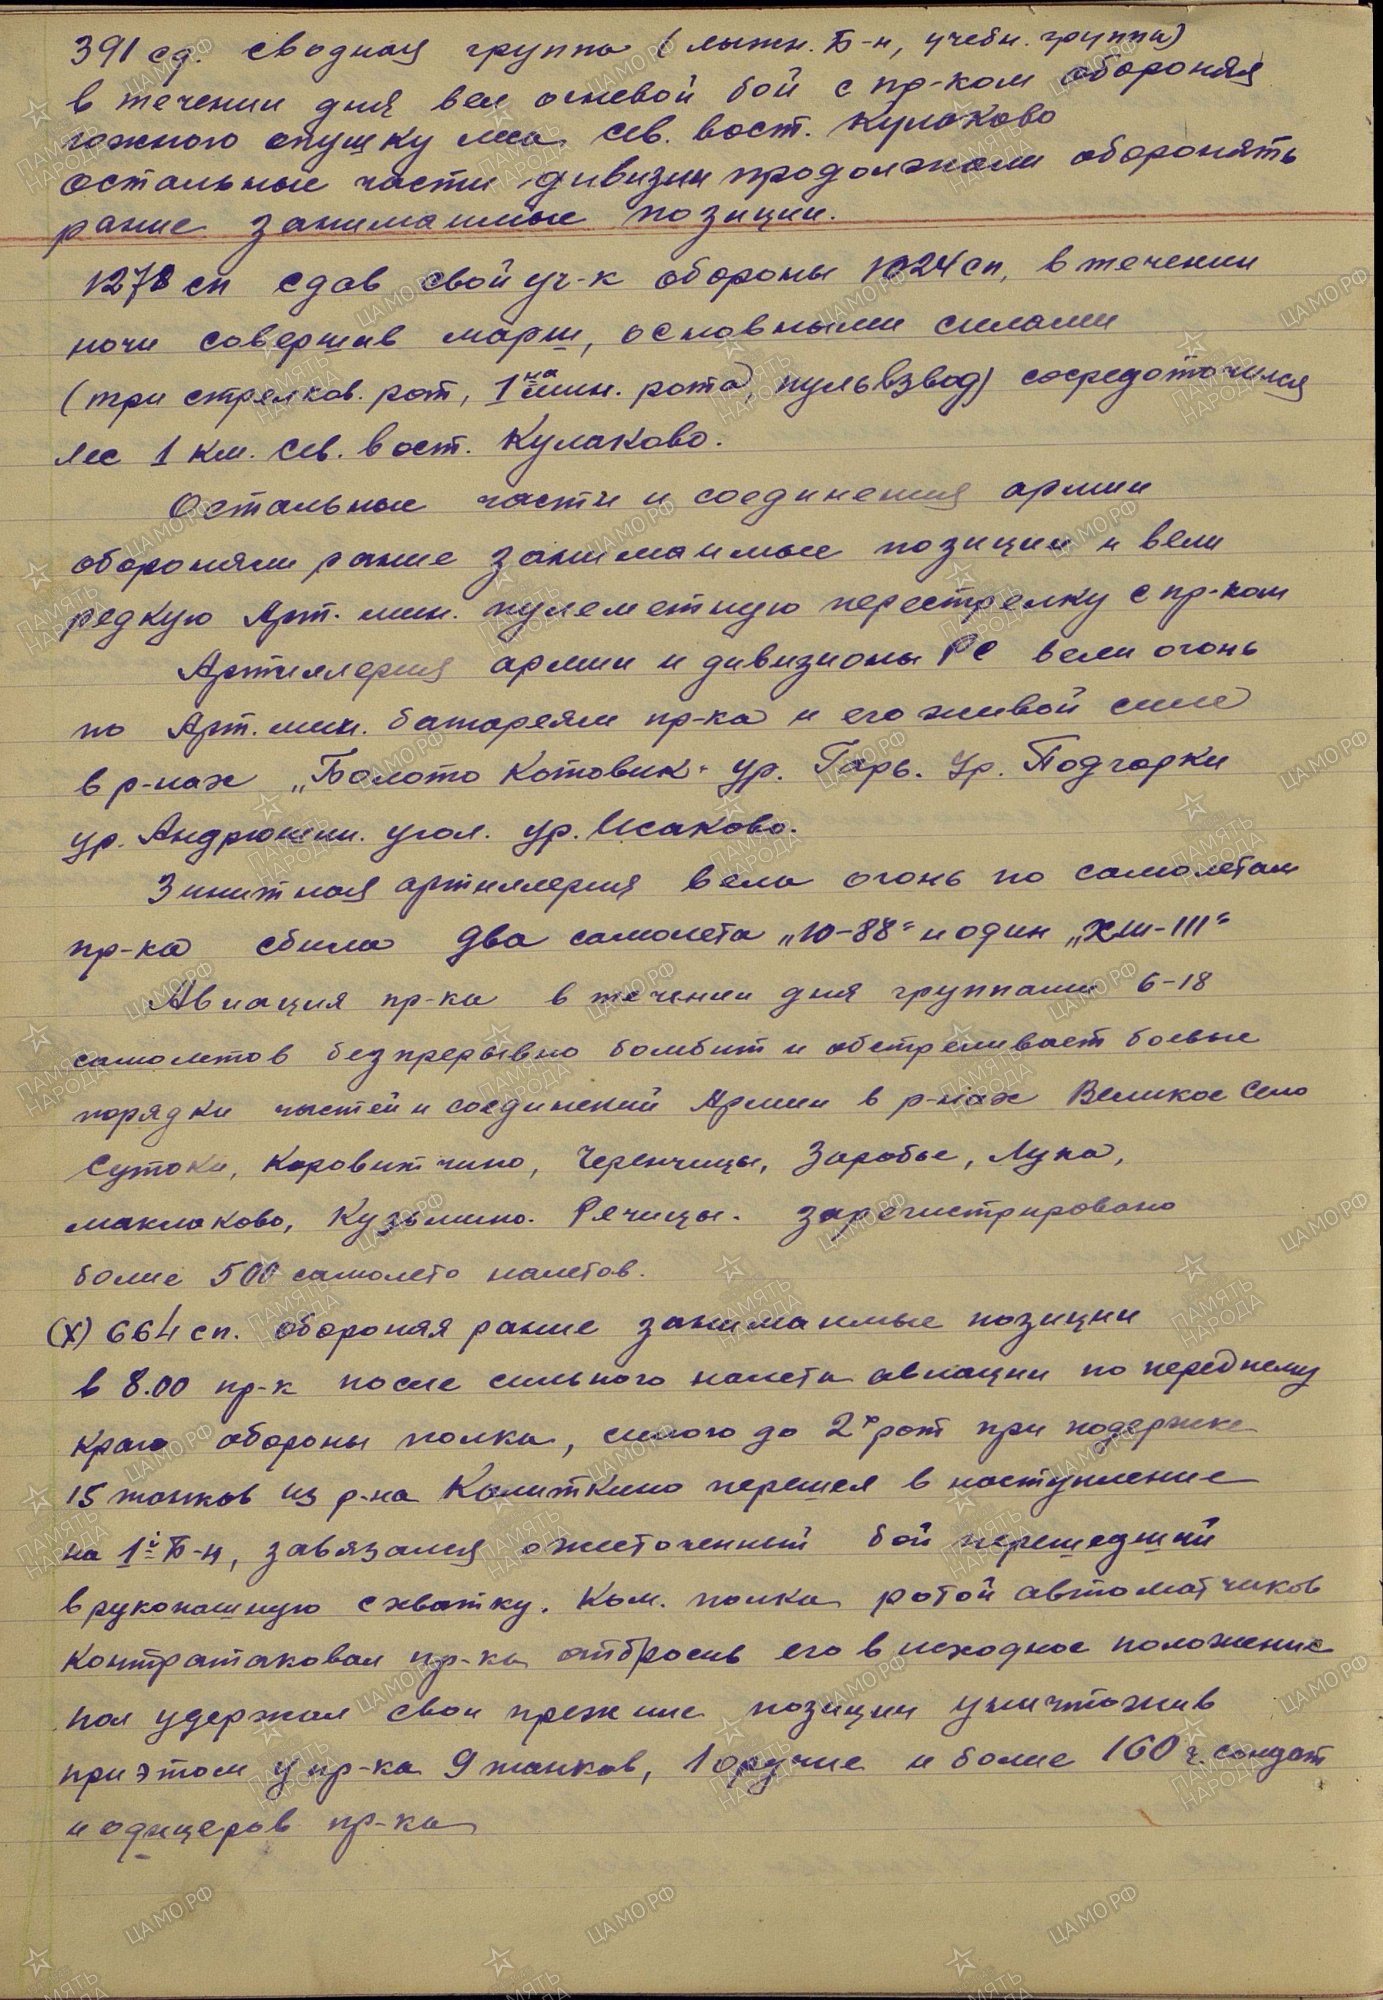 391 сд. сводная группа (лыжн. Б-н, учебн. группа)
в течении дня вел огневой бой с пр-ком обороняя
южную опушку леса сев. вост. Кулаково
остальные части дивизии продолжали оборонять
ранее занимаемые позиции.
1278 сп сдав свой уч-к обороны 1024 сп, в течении
ночи совершив марш, основными силами
(три стрелков. рот, 1на мин. рота, пульвзвод) сосредоточился
лес 1 км. сев. вост. Кулаково.
Остальные части и соединения армии
обороняли ранее занимаемые позиции и вели
редкую Арт. мин. пулеметную перестрелку с пр-ком
Артиллерия армии и дивизионы РС вели огонь
по Арт. мин. батареям пр-ка и его живой силе
в р-нах „Болото Котовик" ур. Гарь. Ур. Подгорки
ур. Андрюшин. угол. ур. Исаково.
Зинитная артиллерия вела огонь по самолетам
пр-ка сбила два самолета „Ю-88" и один „ХШ-111"
Авиация пр-ка в течении дня группами 6-18
самолетов безпрерывно бомбит и обстреливает боевые
порядки частей и соединений Армии в р-нах Великое Село
Сутоки, Коровитчино, Черенчицы, Заробье, Лука,
маклаково, Кузьмино. Речицы. зарегистрировано
более 500 самолето налетов.
(х) 664 сп. обороняя ранее занимаемые позиции
в 8.00 пр-к после сильного налета авиации по переднему
краю обороны полка, силою до 2х рот при подержке
15 танков из р-на Калиткино перешел в наступление
на 1й Б-н, завязался ожесточенный бой перешедший
в рукопашную схватку. Ком. полка ротой автоматчиков
контратаковал пр-ка отбросив его в исходное положение
пол удержал свои прежние позиции уничтожив
при этом у пр-ка 9 танков, 1 орудие и более 160 ч. солдат
и офицеров пр-ка
ЦАМО.РФ
ПАМЯТЬ НАРОДА